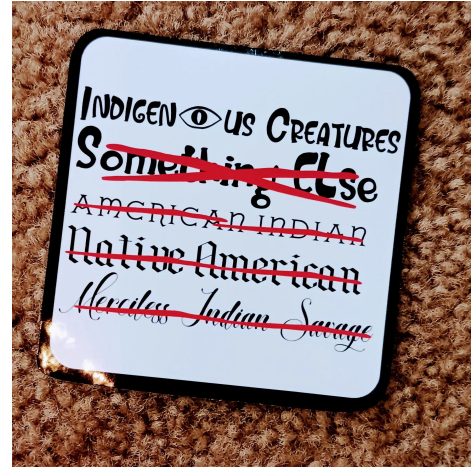 INDIGENOUS CREATURES
Something ELSe
AMERICAN INDIAN
Native American
Merciless Indian Savage